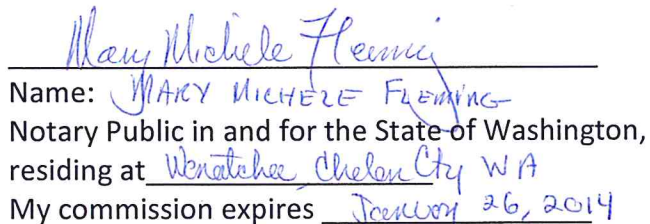 Mary Michele Fleming
Name: MARY MICHELE FLEMING
Notary Public in and for the State of Washington,
residing at Wenatchee, Chelan Cty WA
My commission expires January 26, 2014